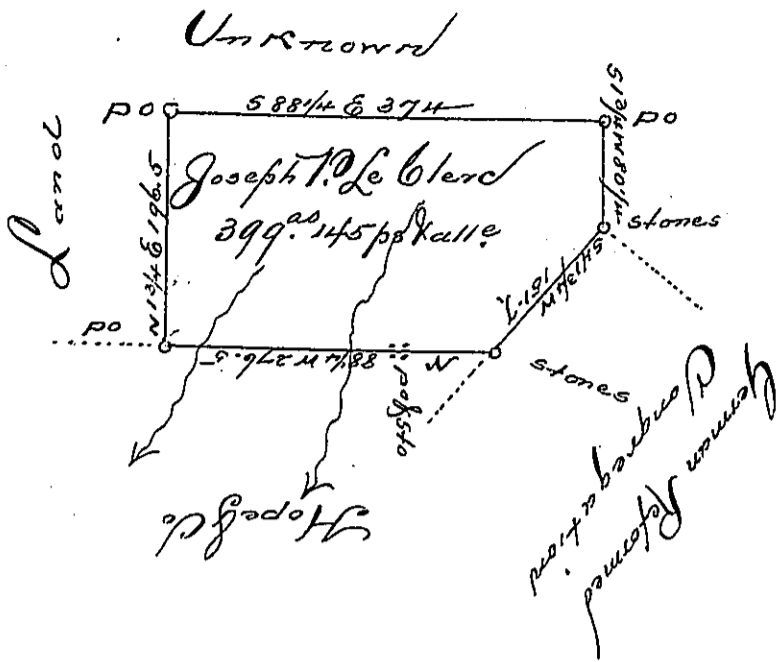 Unknown
Land
po
S 88 1/4 E 374
po
S 1 3/4 W 80 1/4
Joseph P. Le Clerc
399.as 145 ps & alle.
N 1 3/4 E 196.5
stones
S 41 3/4 W
151.7
po
N 88 1/4 W 276.5
po & sto
stones
Hope & Co
German Reformed
Congregation